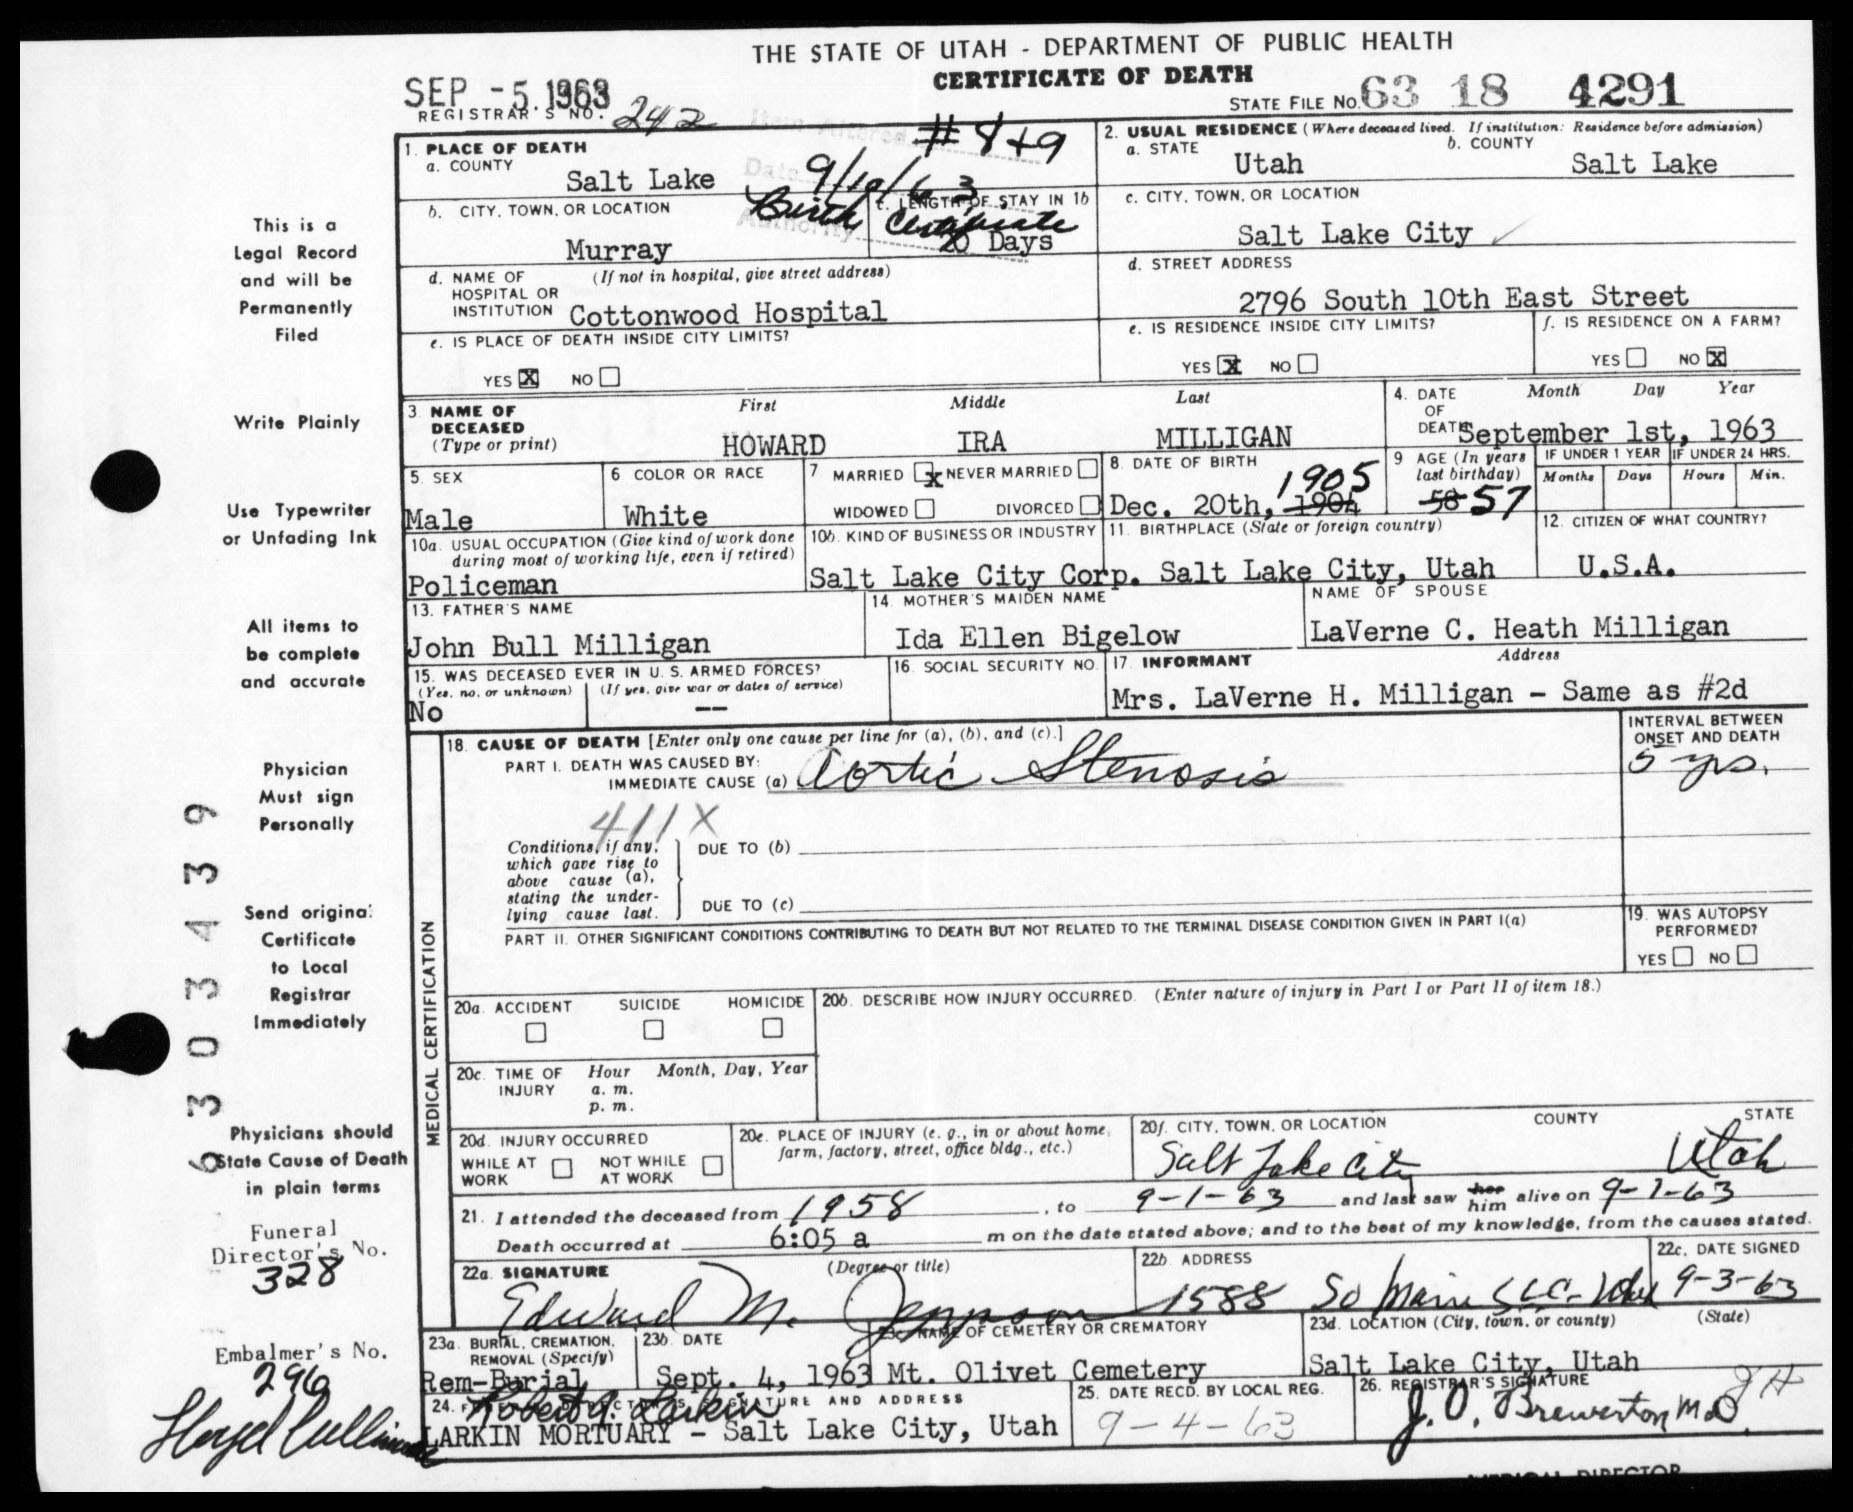 THE STATE OF UTAH - DEPARTMENT OF PUBLIC HEALTH
CERTIFICATE OF DEATH
SEP -5. 1963
REGISTRAR'S NO. 242
STATE FILE NO. 63 18 4291
Item Altered #8+9
Date 9/10/63
Authority Birth Certificate
1. PLACE OF DEATH
a. COUNTY
Salt Lake
b. CITY, TOWN, OR LOCATION
Murray
c. LENGTH OF STAY IN 1b
20 Days
d. NAME OF HOSPITAL OR INSTITUTION (If not in hospital, give street address)
Cottonwood Hospital
e. IS PLACE OF DEATH INSIDE CITY LIMITS?
YES X NO
2. USUAL RESIDENCE (Where deceased lived. If institution: Residence before admission)
a. STATE
Utah
b. COUNTY
Salt Lake
c. CITY, TOWN, OR LOCATION
Salt Lake City
d. STREET ADDRESS
2796 South 10th East Street
e. IS RESIDENCE INSIDE CITY LIMITS?
YES X NO
f. IS RESIDENCE ON A FARM?
YES NO X
3. NAME OF DECEASED (Type or print)
First Middle Last
HOWARD IRA MILLIGAN
4. DATE OF DEATH Month Day Year
September 1st, 1963
5. SEX
Male
6 COLOR OR RACE
White
7 MARRIED X NEVER MARRIED
WIDOWED DIVORCED
8. DATE OF BIRTH
Dec. 20th, 1904 1905
9 AGE (In years last birthday)
58 57
IF UNDER 1 YEAR IF UNDER 24 HRS.
Months Days Hours Min.
10a. USUAL OCCUPATION (Give kind of work done during most of working life, even if retired)
Policeman
10b. KIND OF BUSINESS OR INDUSTRY
Salt Lake City Corp.
11. BIRTHPLACE (State or foreign country)
Salt Lake City, Utah
12. CITIZEN OF WHAT COUNTRY?
U.S.A.
13. FATHER'S NAME
John Bull Milligan
14. MOTHER'S MAIDEN NAME
Ida Ellen Bigelow
NAME OF SPOUSE
LaVerne C. Heath Milligan
15. WAS DECEASED EVER IN U. S. ARMED FORCES?
(Yes, no, or unknown) (If yes, give war or dates of service)
No --
16. SOCIAL SECURITY NO.
17. INFORMANT Address
Mrs. LaVerne H. Milligan - Same as #2d
MEDICAL CERTIFICATION
18. CAUSE OF DEATH [Enter only one cause per line for (a), (b), and (c).]
INTERVAL BETWEEN ONSET AND DEATH
PART I. DEATH WAS CAUSED BY:
IMMEDIATE CAUSE (a) Aortic Stenosis
5 yrs.
411X
Conditions, if any, which gave rise to above cause (a), stating the underlying cause last.
DUE TO (b)
DUE TO (c)
PART II. OTHER SIGNIFICANT CONDITIONS CONTRIBUTING TO DEATH BUT NOT RELATED TO THE TERMINAL DISEASE CONDITION GIVEN IN PART I(a)
19. WAS AUTOPSY PERFORMED?
YES NO
20a. ACCIDENT SUICIDE HOMICIDE
20b. DESCRIBE HOW INJURY OCCURRED. (Enter nature of injury in Part I or Part II of item 18.)
20c. TIME OF INJURY Hour Month, Day, Year
a. m.
p. m.
20d. INJURY OCCURRED
WHILE AT WORK NOT WHILE AT WORK
20e. PLACE OF INJURY (e. g., in or about home, farm, factory, street, office bldg., etc.)
20f. CITY, TOWN, OR LOCATION COUNTY STATE
Salt Lake City Utah
21. I attended the deceased from 1958, to 9-1-63 and last saw her him alive on 9-1-63
Death occurred at 6:05 a m on the date stated above; and to the best of my knowledge, from the causes stated.
22a. SIGNATURE (Degree or title)
Edward M.
22b. ADDRESS
1588 So Main SLC
22c. DATE SIGNED
9-3-63
23a. BURIAL, CREMATION, REMOVAL (Specify)
Rem-Burial
23b. DATE
Sept. 4, 1963
23c. NAME OF CEMETERY OR CREMATORY
Mt. Olivet Cemetery
23d. LOCATION (City, town, or county) (State)
Salt Lake City, Utah
24. FUNERAL DIRECTOR'S SIGNATURE AND ADDRESS
Robert G. Larkin
LARKIN MORTUARY - Salt Lake City, Utah
25. DATE RECD. BY LOCAL REG.
9-4-63
26. REGISTRAR'S SIGNATURE
J. O. Brewerton M.D.
MEDICAL DIRECTOR
This is a
Legal Record
and will be
Permanently
Filed
Write Plainly
Use Typewriter
or Unfading Ink
All items to
be complete
and accurate
Physician
Must sign
Personally
Send original
Certificate
to Local
Registrar
Immediately
Physicians should
State Cause of Death
in plain terms
Funeral
Director's No.
328
Embalmer's No.
296
6303439